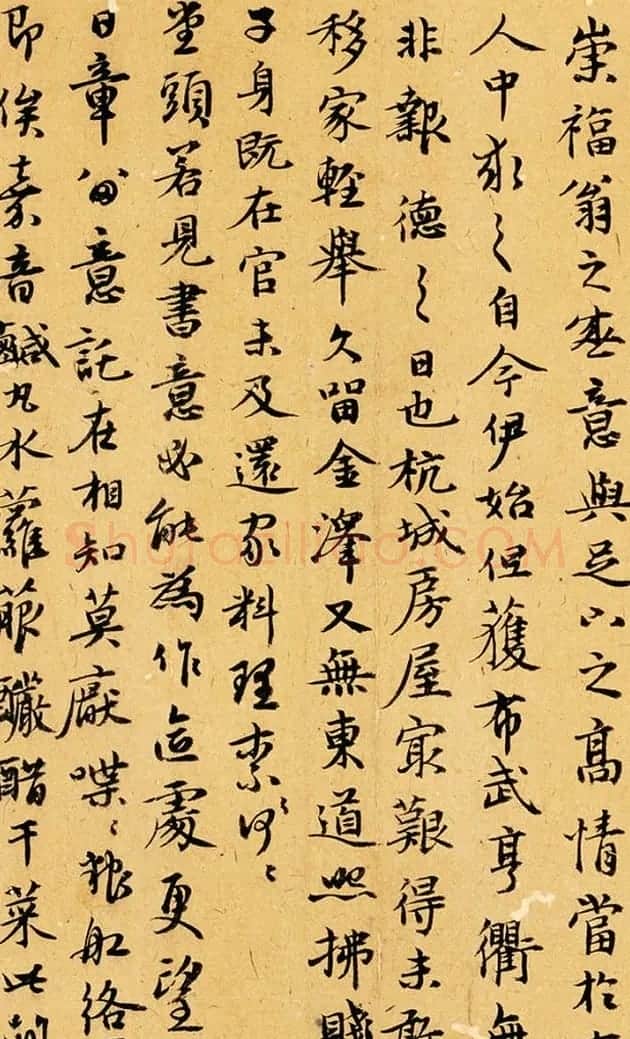 崇福翁之盛意與足下之高情當於
人中求之自今伊始但獲布武亨衢無
非報德之日也杭城房屋寂艱得未敢
移家輕舉久留金澤又無東道照拂賤
子身既在官未及還家料理柰何柰何
堂頭若見書意必能為作區處更望
日章曲意託在相知莫厭喋喋糧舡絡
即俟嘉音鹹丸水蘿菔釅醋干菜此
Shufazidian.COM